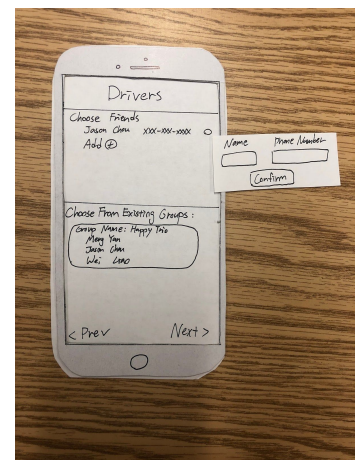 Drivers
Choose Friends
Jason Chou xxx-xxx-xxxx
Add
Name Phone Number
Confirm
Choose From Existing Groups:
Group Name: Happy Trio
Meng Yan
Jason Chou
Wei
< Prev Next >